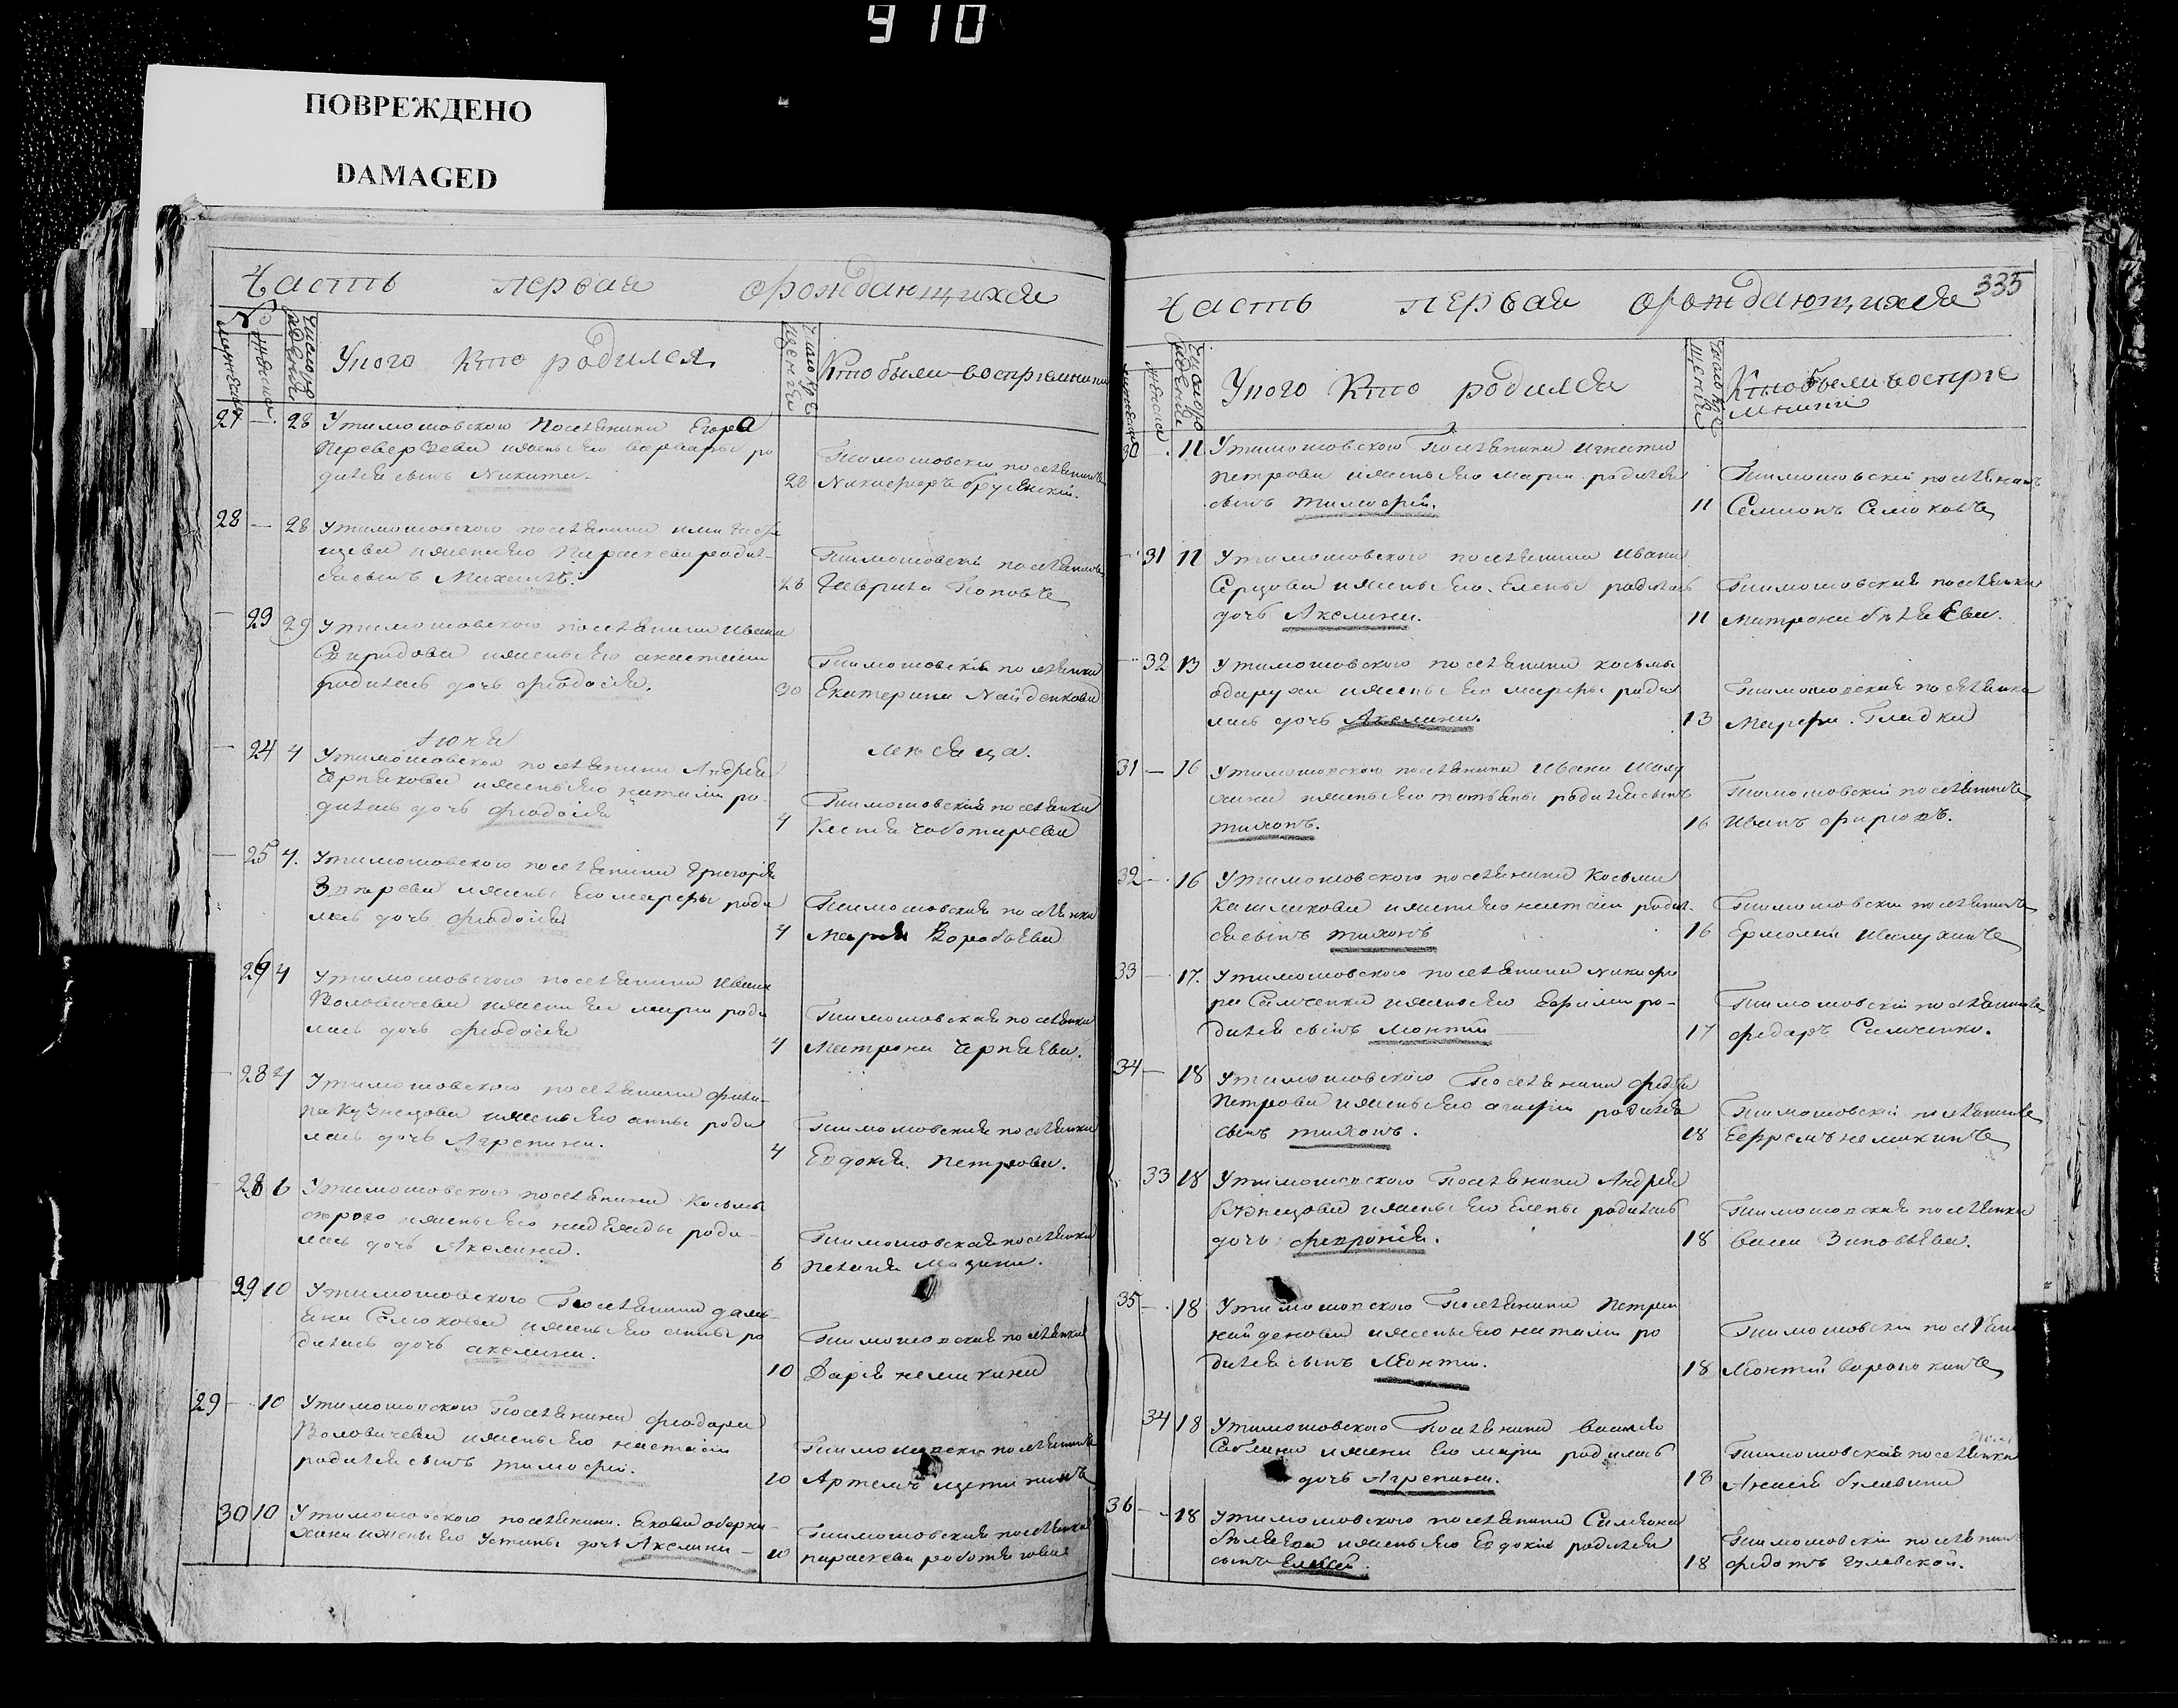 910
ПОВРЕЖДЕНО
DAMAGED
Часть первая орождающихся
№
Число рождения
Уного Кто родился
Число крещения
Кто были восприемники
27 — 28 Утимошовского Поселянина Егора
Переверзева иженыего варвары ро
дился сынъ Никита.
Тимошовски поселянинъ
28 Никифоръ
28 — 28 Утимошовского поселянина
иженыего Параскеви родил-
сясынъ Михаилъ.
Тимошовскi поселянинъ
28 Гаврила Поповъ
29 29 Утимошовского поселянина Ивана
Свиридова иженыего анастасии
родилась дочь феодосiя.
Тимошовскiя поселянка
30 Екатерина Найденкова
Iюня
месяца.
24 4 Утимошовского поселянина Андрея
Чернякова иженыего наталiи ро
дилась дочь феодосiя
Тимошовскiя поселянка
4 Ксенiя Чоботарева
25 4. Утимошовского поселянина Григорiя
иженыего марфы роди
лась дочь феодосiя
Тимошовская поселянка
4 Марiя Воробьева
26 4 Утимошовского поселянина Ивана
Воловичева иженыего марiи роди
лась дочь феодосiя
Тимошовская поселянка
4 Матрона Черняева.
4 Утимошовского поселянина фили-
па Кузнецова иженыего анны роди
лась дочь Агрепина.
Тимошовская поселянка
4 Евдокiя Петрова.
28 6 Утимошовского поселянина Косьмы
иженыего надежды роди-
лась дочь Акелина.
Тимошовская поселянка
6 Пелагiя Мазина.
29 10 Утимошовского Поселянина дамi-
ана Семокова иженыего анны ро
дилась дочь акелина.
Тимошовская поселянка
10 Дарiя немикина
29 — 10 Утимошовского Поселянина феодора
Воловичева иженыего настасiи
родился сынъ тимофей.
Тимошовски поселянинъ
10 Артемъ
30 10 Утимошовского поселянина
иженыего Устины дочь Акелина —
Тимошовская поселянка
10 параскева
335
Часть первая орождающихся
Число рождения
Уного Кто родился
Число крещения
Кто были воспрiе
мники
30 — 11 Утимошовского Поселянина игнатия
петрова иженыего марiи родился
сынъ тимофей.
Тимошовскiй поселянинъ
11 Семионъ Семоковъ
31 11 Утимошовского поселянина Ивана
Серцова иженыего Елены родилась
дочь Акелина.
Тимошовская поселянка
11 матрона беляева.
32 13 Утимошовского поселянина косьмы
иженыего марфы роди
лась дочь Акелина.
Тимошовская поселянка
13 Марфа Гладка
31 — 16 Утимошовского поселянина Ивана Шалу
хина иженыего татьяны родился сынъ
тихонъ.
Тимошовскiй поселянинъ
16 Иванъ фирсовъ.
32 — 16 Утимошовского поселянина Косьми
Кашликова иженыего настасiи родил-
сясынъ тихонъ
Тимошовски поселянинъ
16 Ермолай Шалухинъ
33 — 17. Утимошовского поселянина Никифо
ра Самченка иженыего Ефимiи ро-
дился сынъ леонтiй
Тимошовскiй поселянинъ
17 федаръ Самченко.
34 — 18 Утимошовского Поселянина федора
Петрова иженыего агафiи родился
сынъ тихонъ.
Тимошовскiй поселянинъ
18 Ефремъ немикинъ
33 18 Утимошовского Поселянина Андрея
Кузнецова иженыего Елены родилась
дочь февронiя.
Тимошовская поселянка
18 васса Зиновьева.
35 — 18 Утимошовского Поселянина Петра
найденова иженыего наталiи ро
дился сынъ леонтiй.
Тимошовски поселянин
18 леонтiй воронокинъ
34 18 Утимошовского Поселянина Василия
Саблина иженыего марiи родилась
дочь Агрепина.
Тимошовская поселянка
18 булавина
36 — 18 Утимошовского поселянина Симиона
беляева иженыего Евдокiи родился
сынъ Елисей.
Тимошовскiй поселянинъ
18 федотъ